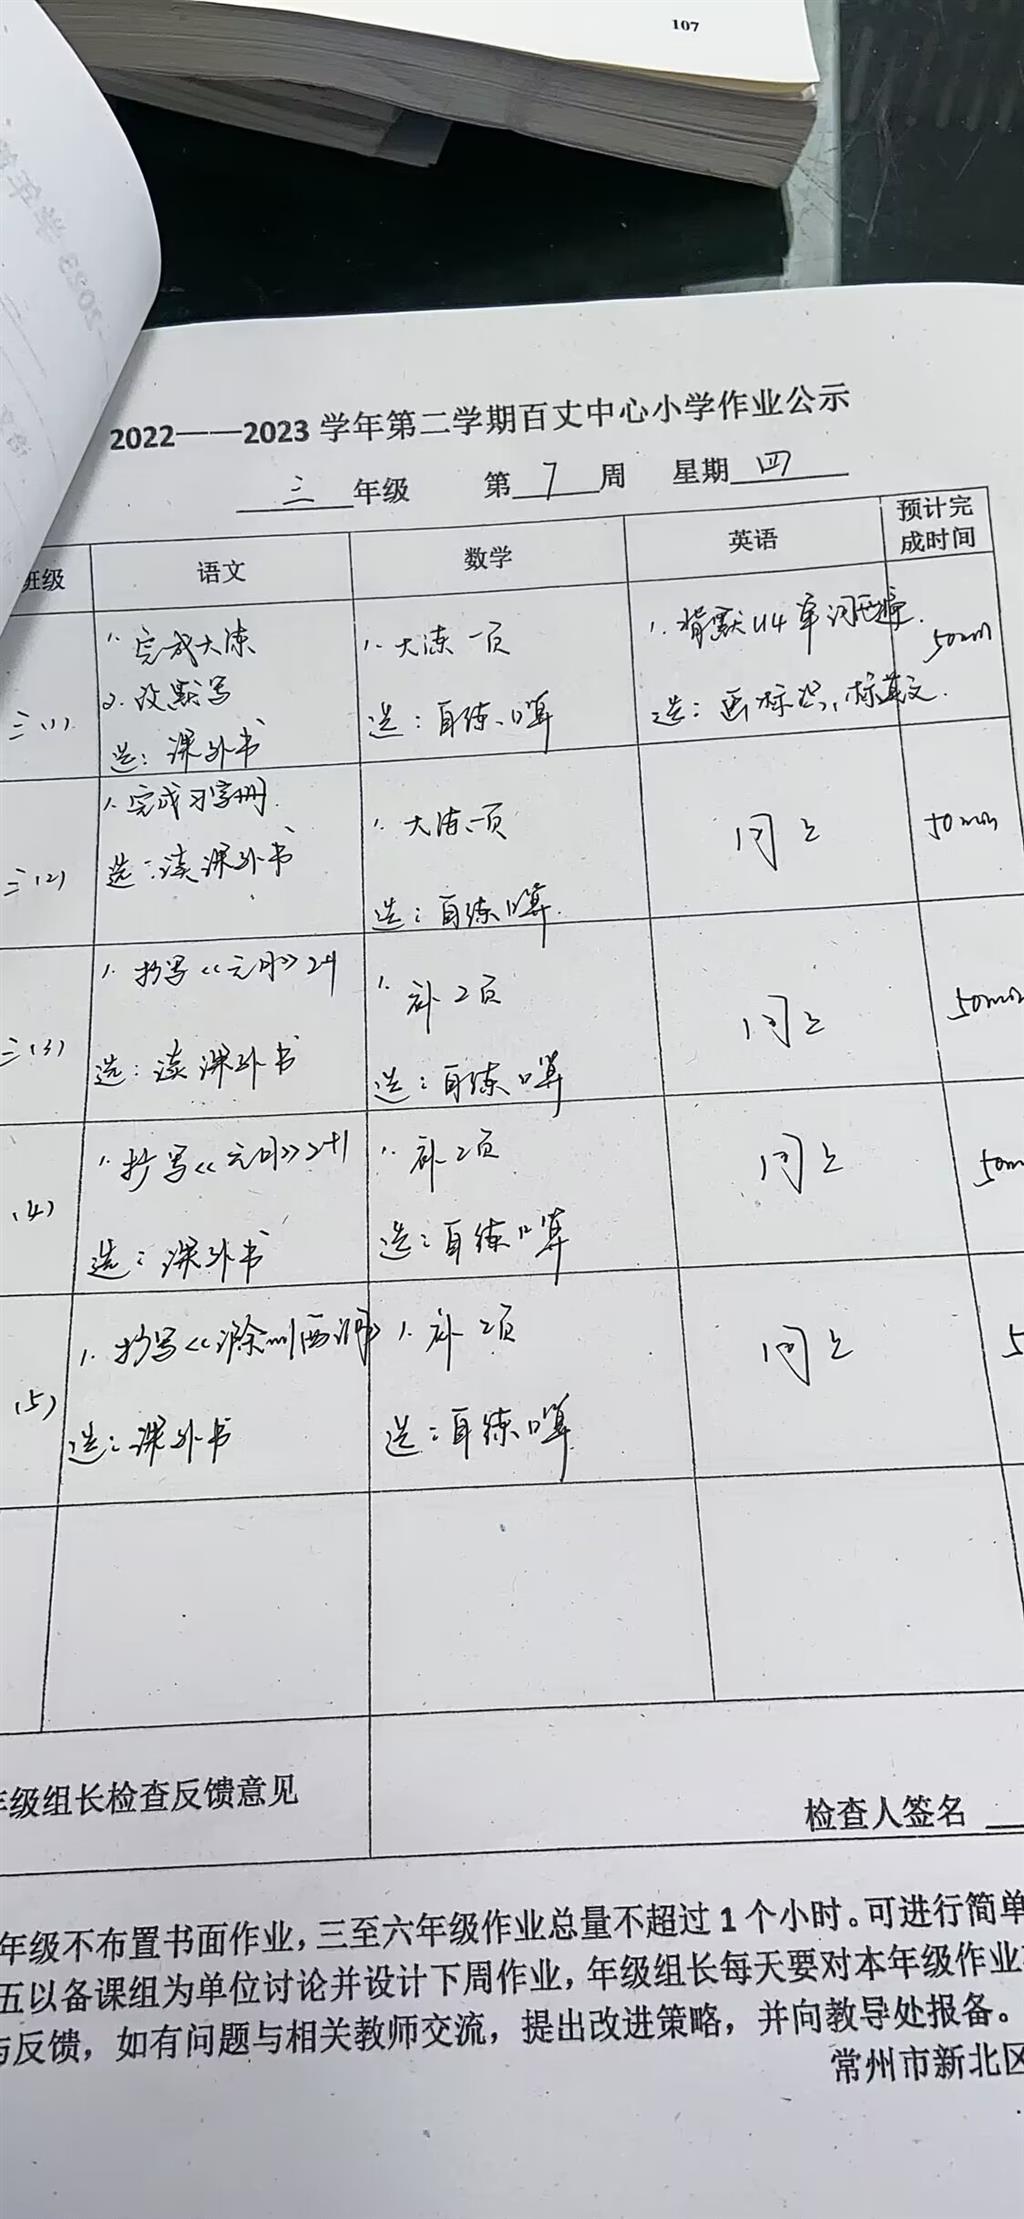 107
2022——2023 学年第二学期百丈中心小学作业公示
三 年级 第 7 周 星期 四
班级 语文 数学 英语 预计完成时间
三(1) 1. 完成大练 1. 大练一页 1. 背默U4单词 50min
2. 改默写
选: 课外书 选: 自练口算 选: 画标识, 标英文.
三(2) 1. 完成习字册. 1. 大练一页 同上 50min
选: 读课外书 选: 自练口算.
三(3) 1. 抄写《元日》2+1 1. 补2页 同上 50min
选: 读课外书 选: 自练口算
(4) 1. 抄写《元日》2+1 1. 补2页 同上 50m
选: 课外书 选: 自练口算
(5) 1. 抄写《滁州西涧》 1. 补2页 同上 5
选: 课外书 选: 自练口算
年级组长检查反馈意见
检查人签名
年级不布置书面作业，三至六年级作业总量不超过1个小时。可进行简单
五以备课组为单位讨论并设计下周作业，年级组长每天要对本年级作业
与反馈，如有问题与相关教师交流，提出改进策略，并向教导处报备。
常州市新北区